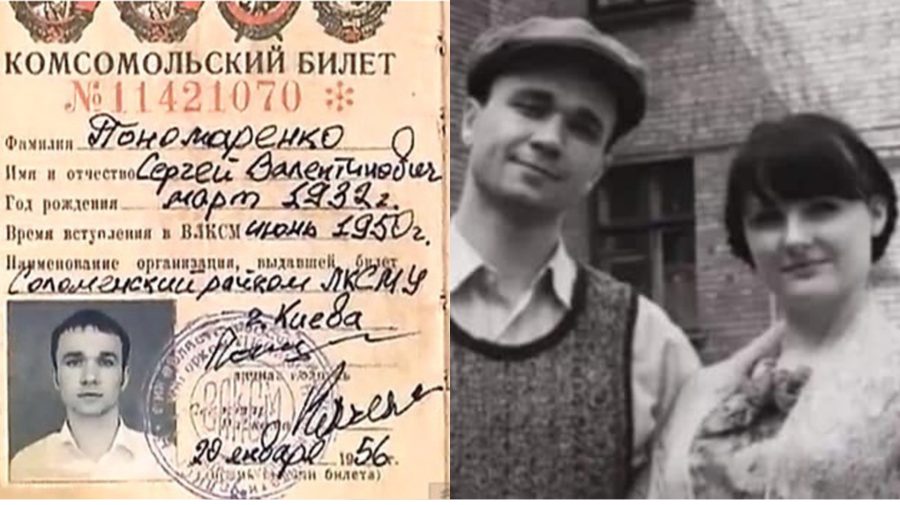 КОМСОМОЛЬСКИЙ БИЛЕТ
№11421070
Фамилия Пономаренко
Имя и отчество Сергей Валентинович
Год рождения март 1932 г.
Время вступления в ВЛКСМ июнь 1950 г.
Наименование организации, выдавшей билет
Соломенский райком ЛКСМУ
г. Киева
20 января 1956 г.
билета)